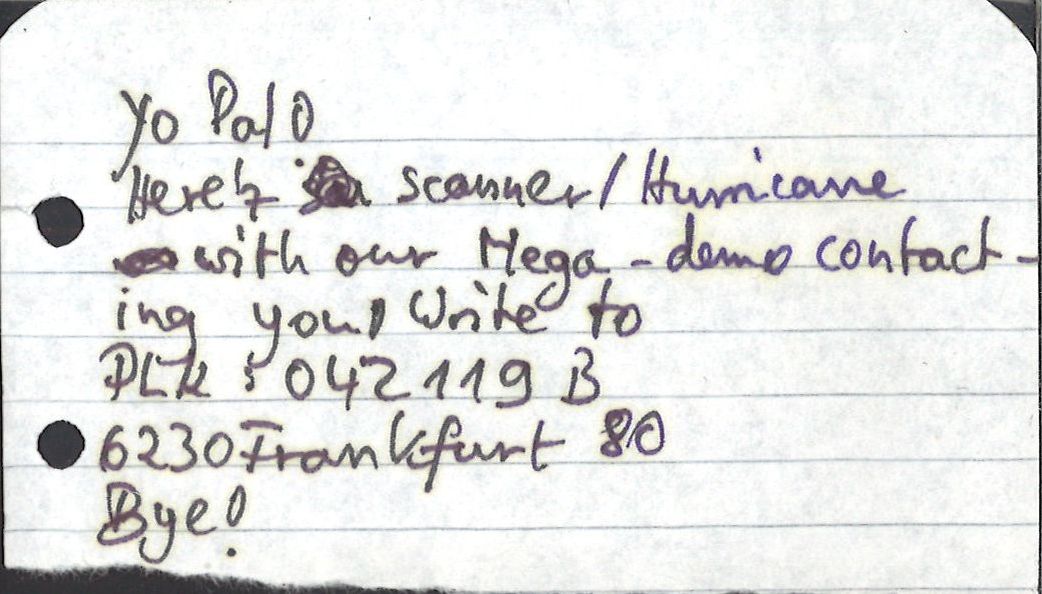 Yo Pal!
Here'z scanner/Hurricane
with our Mega-demo contact-
ing you! Write to
PLK: 042119 B
6230 Frankfurt 80
Bye!